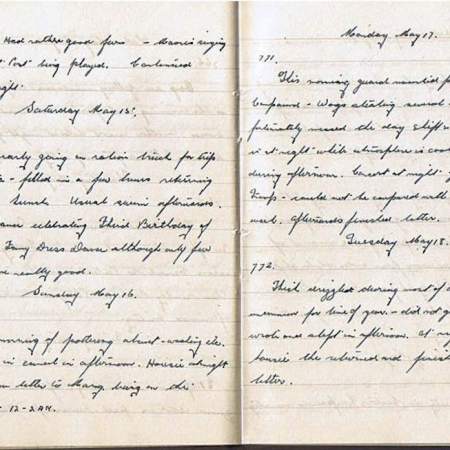 Had rather good fun - Maoris singing
" being played.
night.
Saturday May 15.
early going on ration truck for trip
- filled in a few hours returning
lunch. Usual swim afternoon.
celebrating Third Birthday of
Fancy Dress Dance although only few
really good.
Sunday May 16.
morning of pottering about - washing etc.
in canal in afternoon. Housie at night
letter to Mary, being on the
12-2 AM.
Monday May 17.
771.
This morning guard mounted
Compound - Wogs stealing
fortunately missed the day shift
it at night while atmosphere is cool
during afternoon. Concert at night
Troop - could not be compared with
week. Afterwards finished letter.
Tuesday May 18.
772.
Thick drizzle during most of
for time of year - did not g
wrote and slept in afternoon. At
housie the returned and
letter.